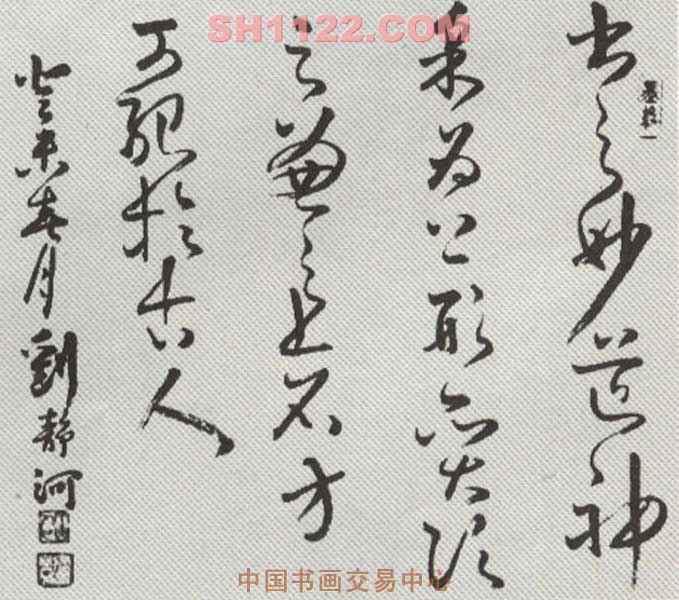 SH1122.COM
書之妙道神
采為上形質次
之兼之者方
可紹於古人
癸未春月劉静河
中国书画交易中心